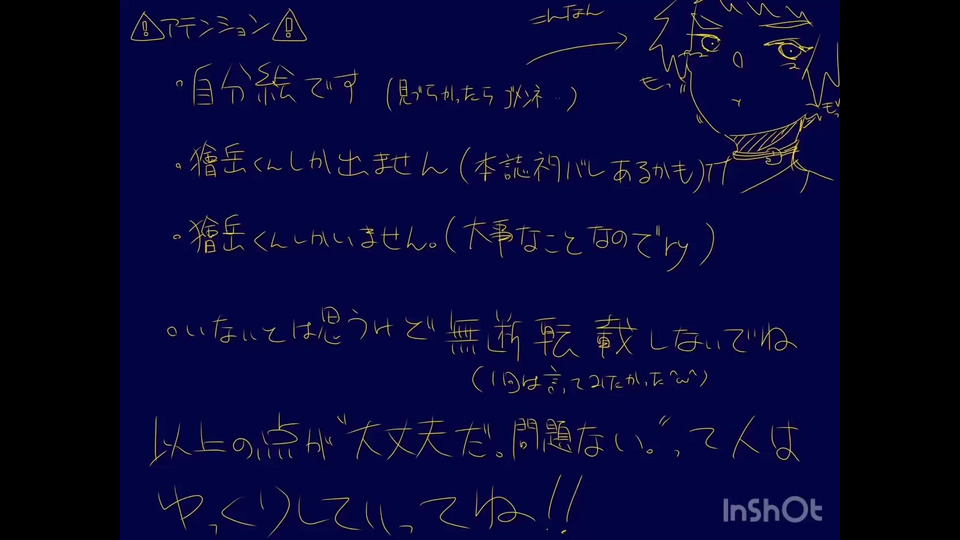 ⚠アテンション⚠
こんなん
・自分絵です(見づらかったらゴメンネ…)
・獪岳くんしか出ません(本誌ネタバレあるかも)
・獪岳くんしかいません。(大事なことなのでry)
・いないとは思うけど無断転載しないでね
(1回は言ってみたかった^ω^)
以上の点が"大丈夫だ。問題ない。"って人は
ゆっくりしていってね!!
InShOt